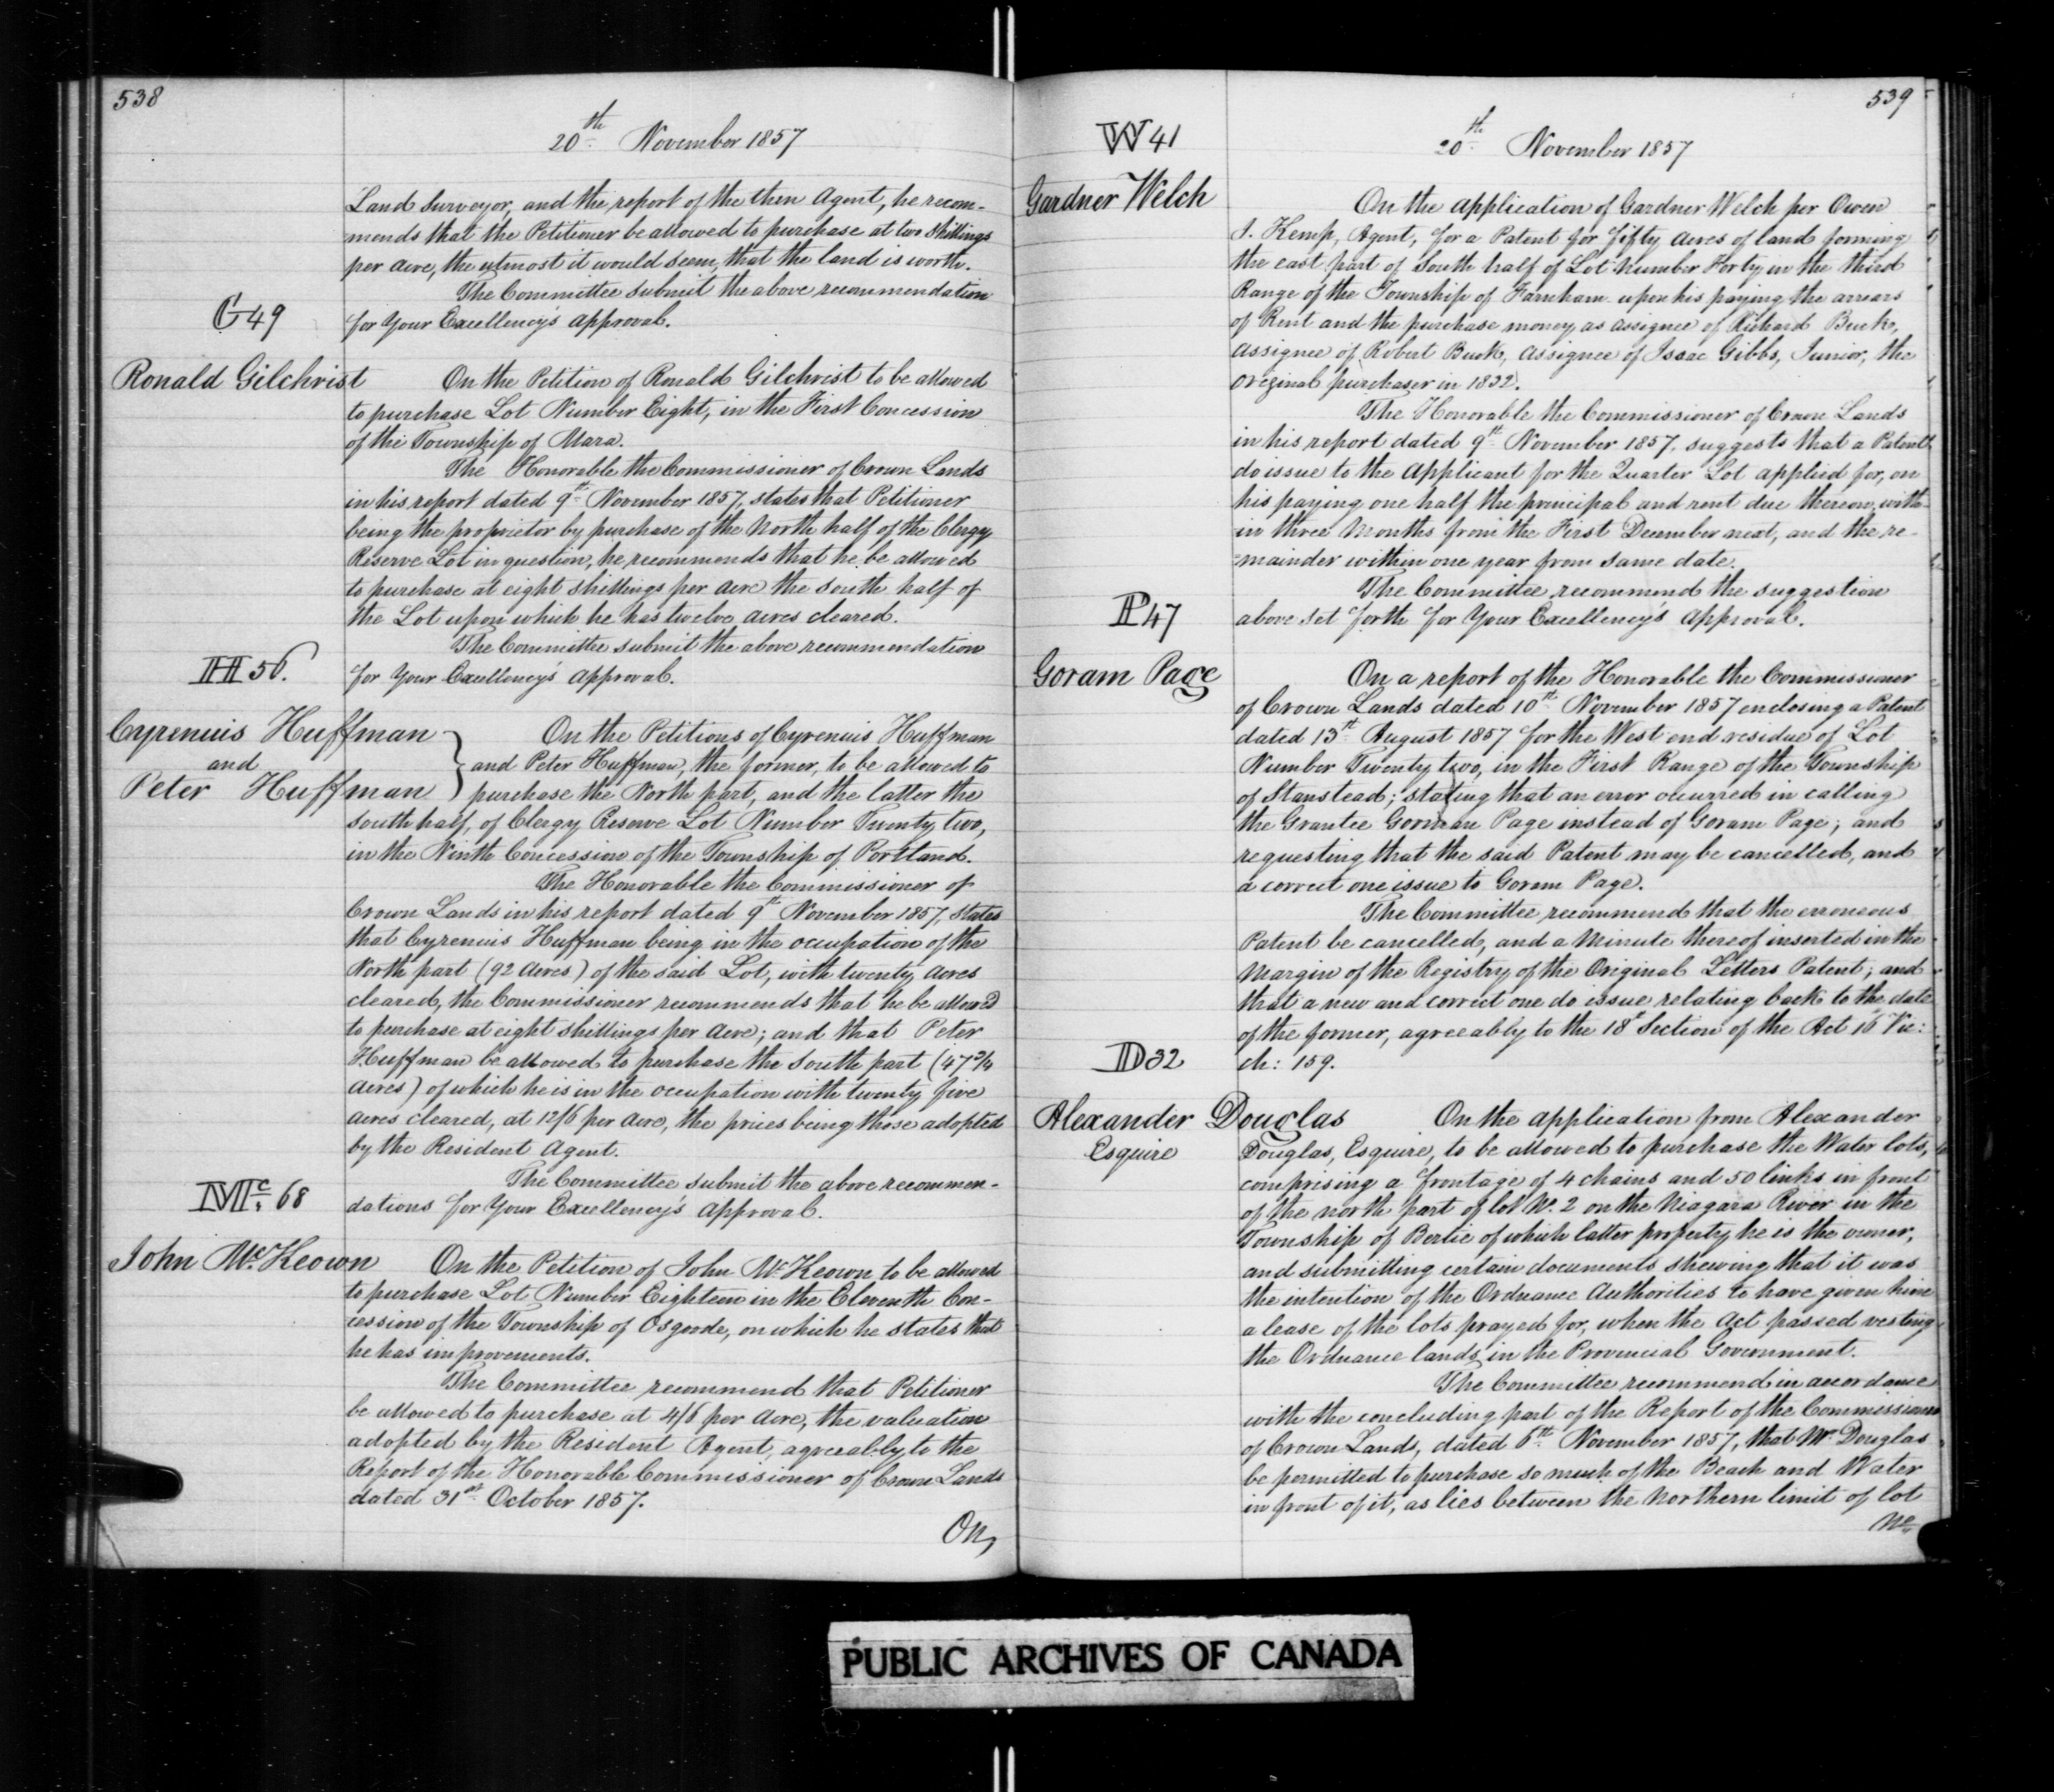 538
20th November 1857
Land Surveyor, and the report of the then Agent, he recom-
mends that the Petitioner be allowed to purchase at two shillings
per acre, the utmost it would seem, that the land is worth.
The Committee submit the above recommendation
for Your Excellency's approval.
G 49
Ronald Gilchrist
On the Petition of Ronald Gilchrist to be allowed
to purchase Lot Number Eight, in the First Concession
of the Township of Mara.
The Honorable the Commissioner of Crown Lands
in his report dated 9th November 1857, states that Petitioner
being the proprietor by purchase of the North half of the Clergy
Reserve Lot in question, he recommends that he be allowed
to purchase at eight shillings per acre the South half of
the Lot upon which he has twelve acres cleared.
The Committee submit the above recommendation
for Your Excellency's approval.
H 56.
Cyrenius Huffman
and
Peter Huffman
On the Petitions of Cyrenius Huffman
and Peter Huffman, the former, to be allowed to
purchase the North part, and the latter the
South half, of Clergy Reserve Lot Number Twenty two,
in the Ninth Concession of the Township of Portland.
The Honorable the Commissioner of
Crown Lands in his report dated 9th November 1857, states
that Cyrenius Huffman being in the occupation of the
North part (92 acres) of the said Lot, with twenty acres
cleared, the Commissioner recommends that he be allowed
to purchase at eight shillings per acre; and that Peter
Huffman be allowed to purchase the South part (47 3/4
acres) of which he is in the occupation with twenty five
acres cleared, at 12/6 per acre, the prices being those adopted
by the Resident Agent.
The Committee submit the above recommen-
dations for Your Excellency's approval.
Mc. 68
John McKeown
On the Petition of John McKeown to be allowed
to purchase Lot Number Eighteen in the Eleventh Con-
cession of the Township of Osgoode, on which he states that
he has improvements.
The Committee recommend that Petitioner
be allowed to purchase at 4/6 per acre, the valuation
adopted by the Resident Agent, agreeably to the
Report of the Honorable Commissioner of Crown Lands
dated 31st October 1857.
On,
539
20th November 1857
W 41
Gardner Welch
On the application of Gardner Welch per Owen
J. Kemp, Agent, for a Patent for fifty acres of land forming
the east part of South half of Lot Number Forty in the third
Range of the Township of Farnham upon his paying the arrears
of Rent and the purchase money, as assignee of Richard Buck,
assignee of Robert Buck, assignee of Isaac Gibbs, Junior, the
original purchaser in 1832.
The Honorable the Commissioner of Crown Lands
in his report dated 9th November 1857, suggests that a Patent
do issue to the Applicant for the Quarter Lot applied for, on
his paying one half the principal and rent due thereon, with-
in three months from the First December next, and the re-
=mainder within one year from same date.
The Committee recommend the suggestion
above set forth for Your Excellency's approval.
P 47
Goram Page
On a report of the Honorable the Commissioner
of Crown Lands dated 10th November 1857 enclosing a Patent
dated 13th August 1857 for the West end residue of Lot
Number Twenty two, in the First Range of the Township
of Stanstead; stating that an error occurred in calling
the Grantee Gorman Page instead of Goram Page; and
requesting that the said Patent may be cancelled, and
a correct one issue to Goram Page.
The Committee recommend that the erroneous
Patent be cancelled, and a Minute thereof inserted in the
Margin of the Registry of the Original Letters Patent; and
that a new and correct one do issue relating back to the date
of the former, agreeably to the 18th Section of the Act 16 Vic:
ch: 159.
D 32
Alexander Douglas
Esquire
On the application from Alexander
Douglas, Esquire, to be allowed to purchase the Water lots,
comprising a frontage of 4 chains and 50 links in front
of the north part of lot No. 2 on the Niagara River in the
Township of Bertie of which latter property he is the owner,
and submitting certain documents shewing that it was
the intention of the Ordnance Authorities to have given him
a lease of the lots prayed for, when the Act passed vesting
the Ordnance lands in the Provincial Government.
The Committee recommend in accordance
with the concluding part of the Report of the Commissioner
of Crown Lands, dated 6th November 1857, that Mr Douglas
be permitted to purchase so much of the Beach and Water
in front of it, as lies between the Northern limit of lot
No.
PUBLIC ARCHIVES OF CANADA